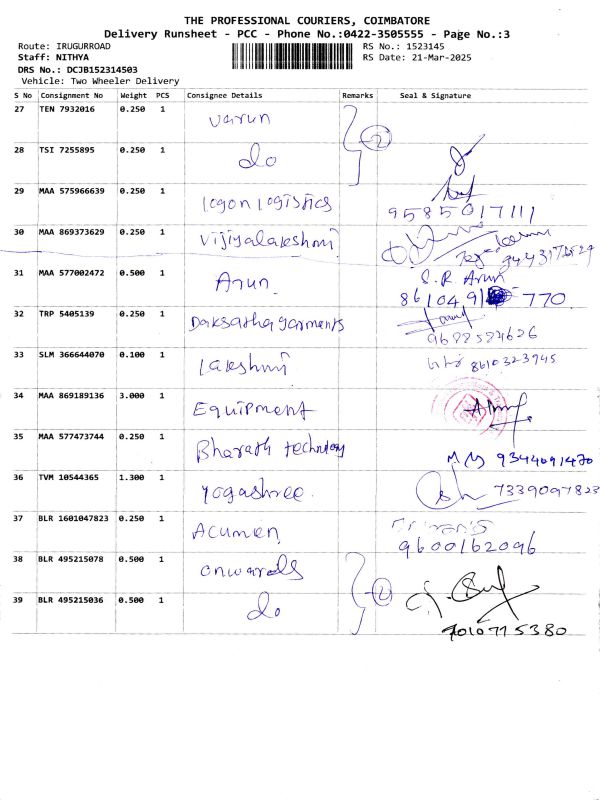 THE PROFESSIONAL COURIERS, COIMBATORE
Delivery Runsheet - PCC - Phone No.:0422-3505555 - Page No.:3
Route: IRUGURROAD RS No.: 1523145
Staff: NITHYA RS Date: 21-Mar-2025
DRS No.: DCJB152314503
Vehicle: Two Wheeler Delivery
S No Consignment No Weight PCS Consignee Details Remarks Seal & Signature
27 TEN 7932016 0.250 1 Varun
2
28 TSI 7255895 0.250 1 do
29 MAA 575966639 0.250 1 logon logistics 9585017111
30 MAA 869373629 0.250 1 Vijiyalakshmi
31 MAA 577002472 0.500 1 Arun S.R. Arun
861049 770
32 TRP 5405139 0.250 1 Daksatha garments
33 SLM 366644070 0.100 1 Lakshmi 8610323945
34 MAA 869189136 3.000 1 Equipment
35 MAA 577473744 0.250 1 Bharath technology 9344091470
36 TVM 10544365 1.300 1 Yogashree. 7339097823
37 BLR 1601047823 0.250 1 Acumen 9600162096
38 BLR 495215078 0.500 1 onwards
2
39 BLR 495215036 0.500 1 do 7010775380